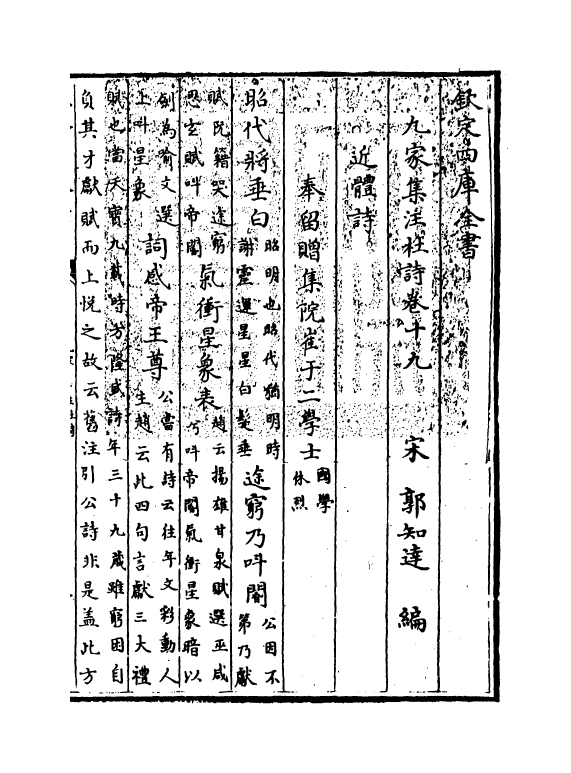 欽定四庫全書
九家集注杜詩卷十九
宋 郭知達 編
近體詩
奉留贈集院崔于二學士國學休烈
昭代將垂白昭明也昭代猶明時謝靈運星星白髮垂途窮乃叫閽公因不第乃獻
賦阮籍哭途窮思玄賦叫帝閽氣衝星象表趙云揚雄甘泉賦選巫咸兮叫帝閽氣衝星象暗以
劍為喻文選上叫星象詞感帝王尊公嘗有詩云往年文彩動人主趙云此四句言獻三大禮
賦也當天寶九載時方隆盛詩年三十九歲雖窮困自
負其才獻賦而上悅之故云舊注引公詩非是盖此方